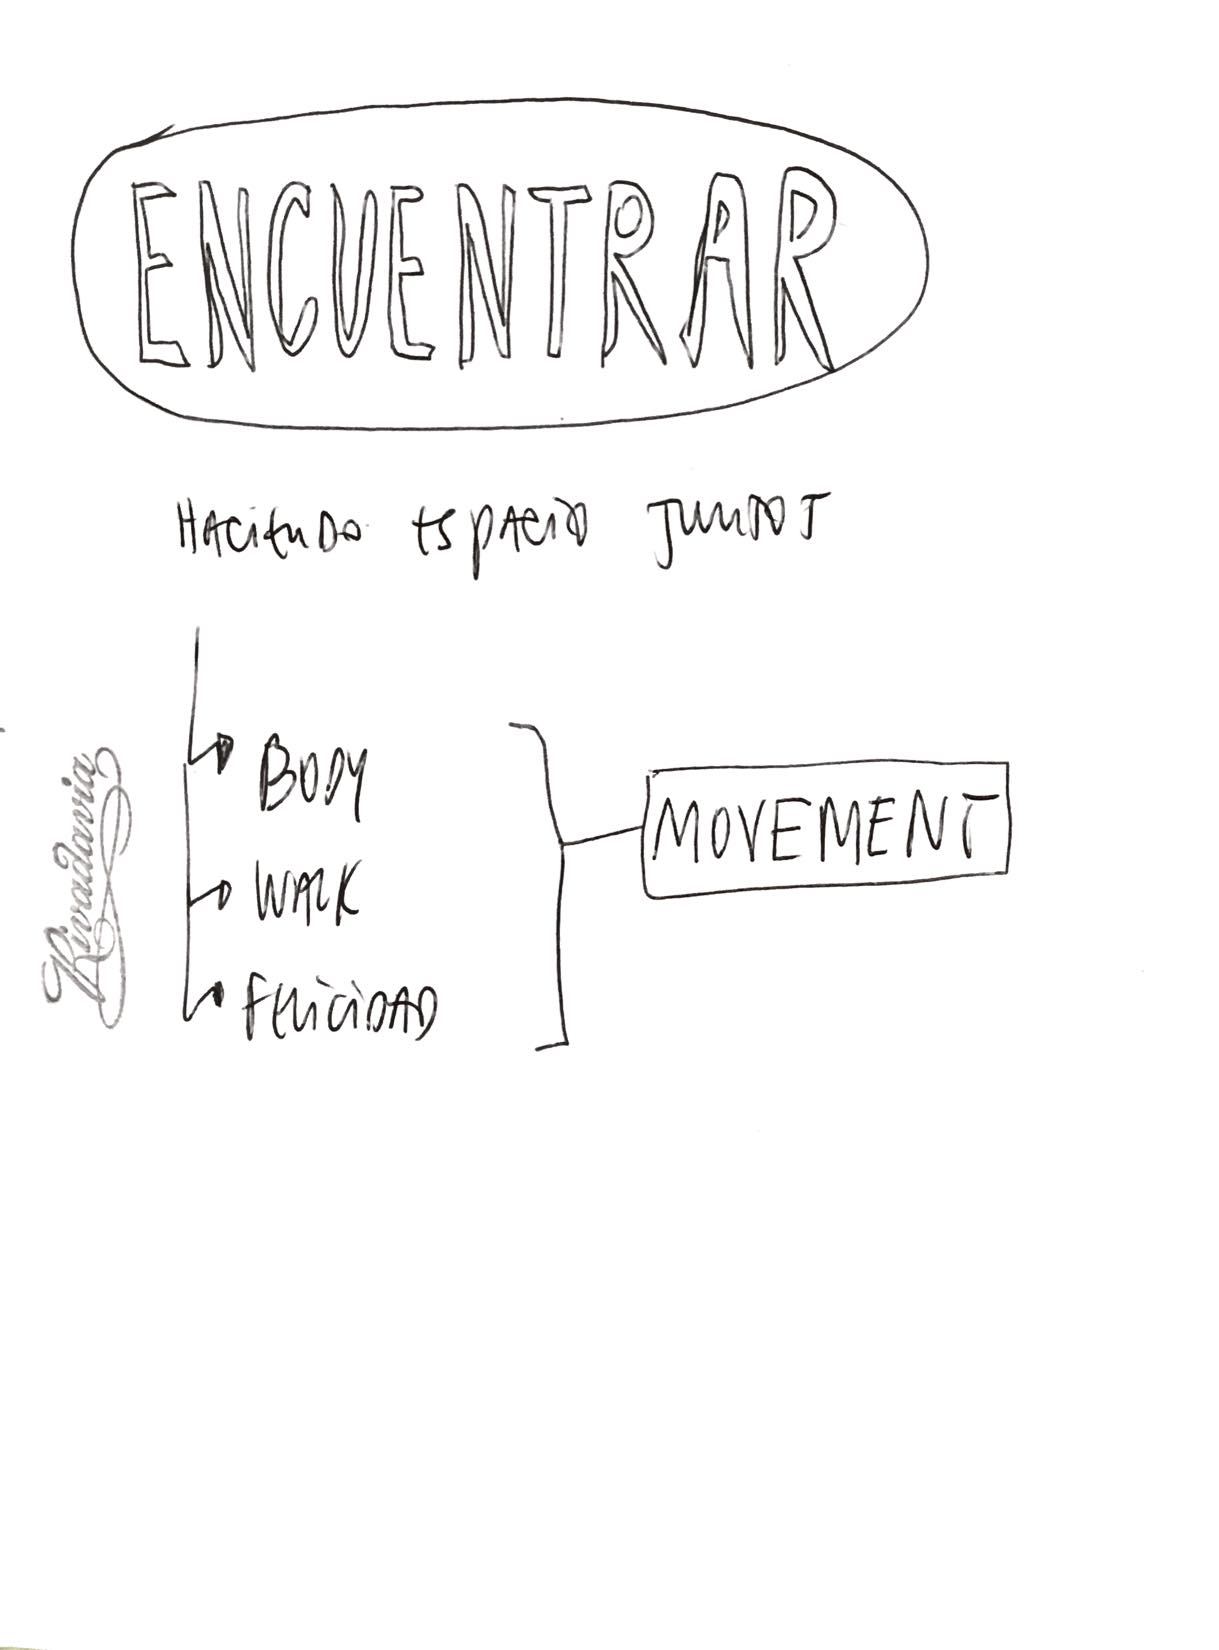 ENCUENTRAR
HACiENDO ESPACIO JUNTOS
BODY
WALK
FELICIDAD
MOVEMENT
Rivadavia